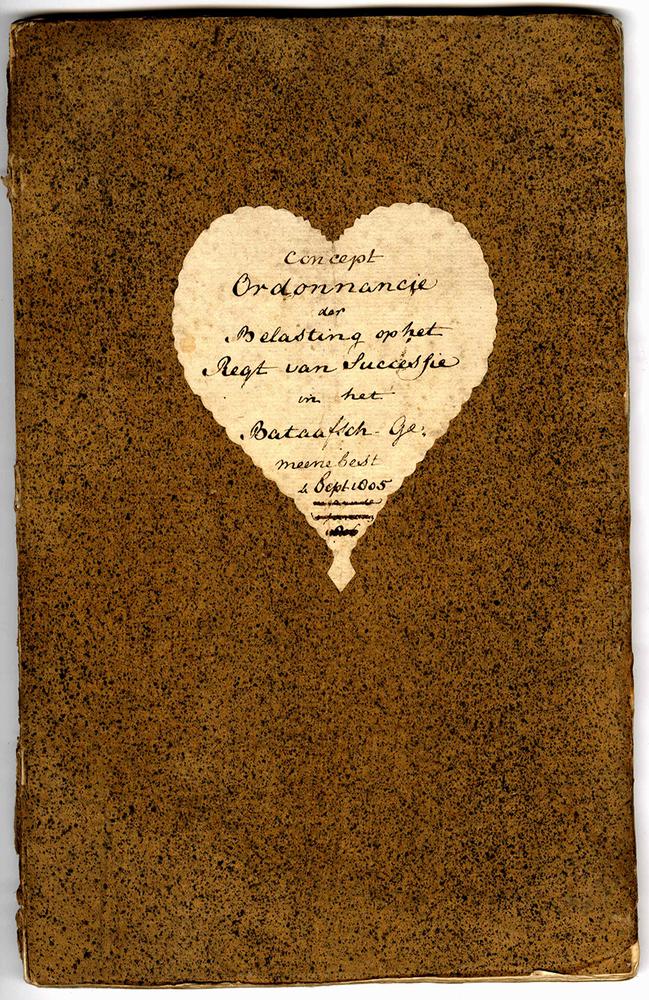 Concept
Ordonnancie
der
Belasting op het
Regt van Successie
in het
Bataafsch Ge:
meene best
4 Sept 1805